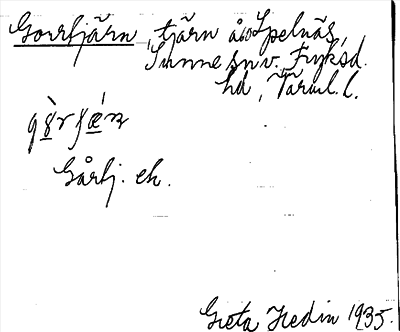 Gorrtjärn, tjärn å Spelnäs,
Sunne snv. Fryksd.
hd, Värml. l.
Gårtj. ek.
Greta Hedin 1935.